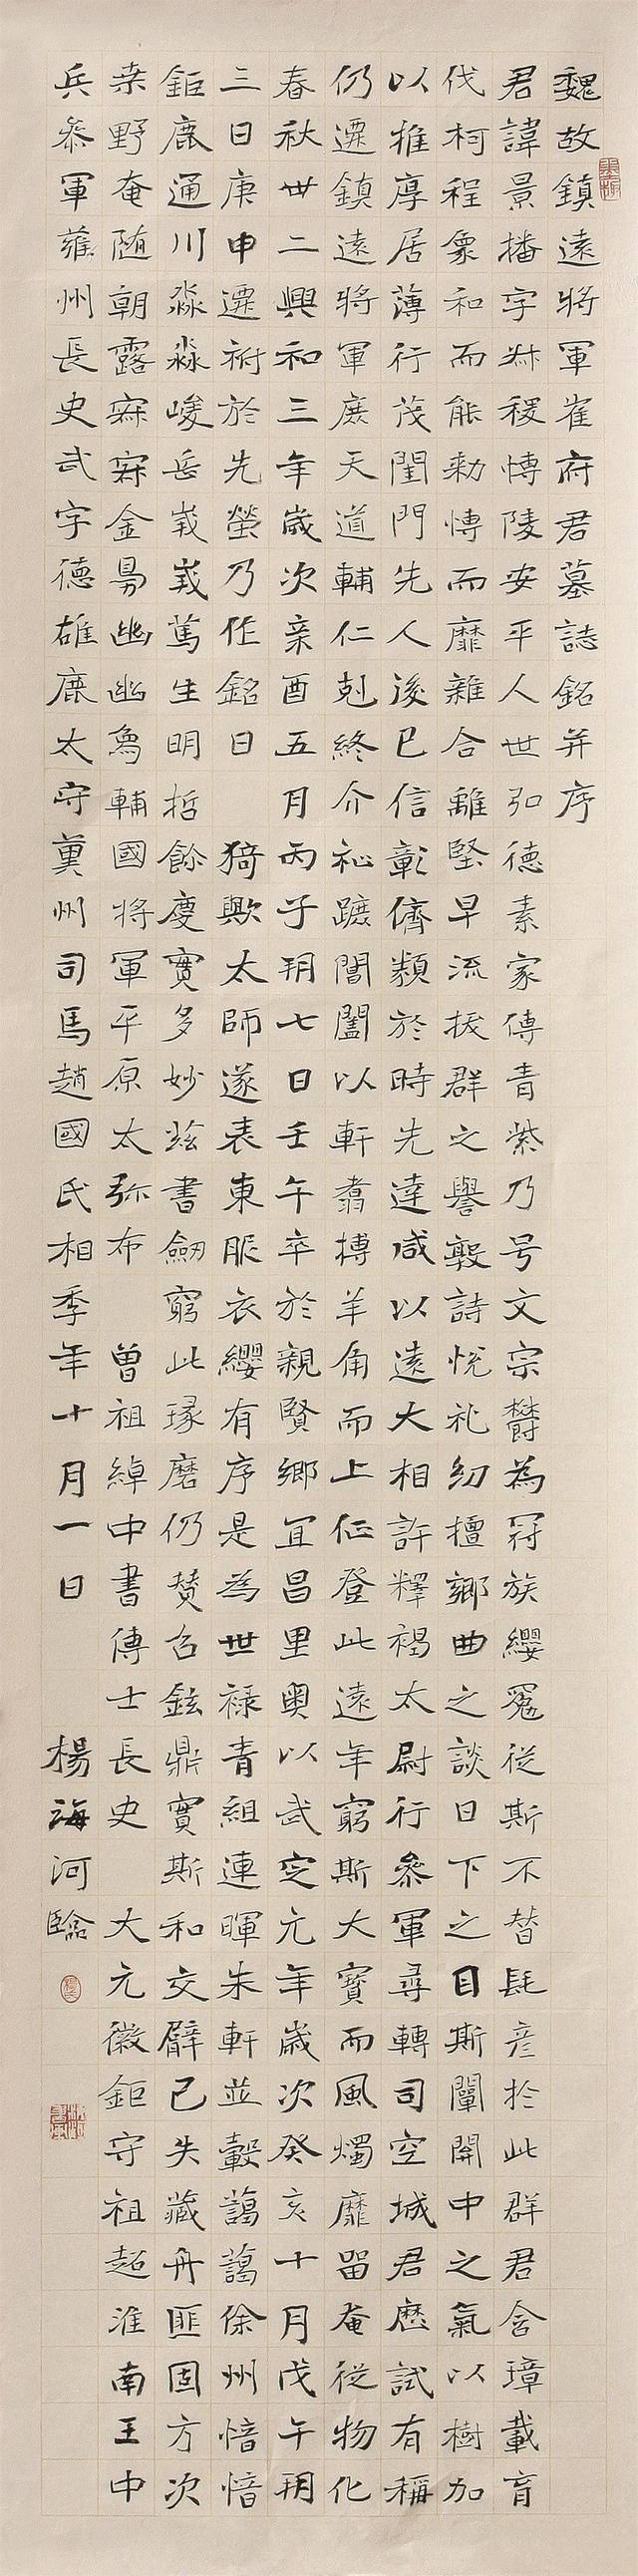 魏故鎮遠將軍崔府君墓誌銘并序
君諱景播字叔稷愽陵安平人世弘德素家傳青紫乃号文宗欝為冠族纓冕從斯不替髦彦於此群君含璋載育
伐柯程象和而能勑愽而靡雜合離堅早流拔群之譽敦詩悅礼幼擅鄉曲之談日下之目斯闡開中之氣以樹加
以推厚居薄行茂閨門先人後已信彰儕類於時先達咸以遠大相許釋褐太尉行叅軍尋轉司空城君歷試有稱
仍遷鎮遠將軍庶天道輔仁剋終介祉蹠閶闔以軒翥摶羊角而上征登此遠年窮斯大寶而風燭靡留奄從物化
春秋卅二興和三年歲次辛酉五月丙子朔七日壬午卒於親賢鄉宜昌里奥以武定元年歲次癸亥十月戊午朔
三日庚申遷祔於先塋乃作銘曰 猗歟太師遂表東服衣纓有序是為世禄青組連暉朱軒並轂藹藹徐州愔愔
鉅鹿通川淼淼峻岳峩峩篤生明哲餘慶實多妙茲書劒窮此琢磨仍賛台鉉鼎實斯和交臂已失藏舟匪固方次
桒野奄随朝露寂寂金昜幽幽 輔國將軍平原太 布 曽祖綽中書傳士長史 大元徽鉅守祖超淮南王中
兵叅軍雍州長史武字德雄鹿太守冀州司馬趙國氏相季年十月一日 楊海河臨